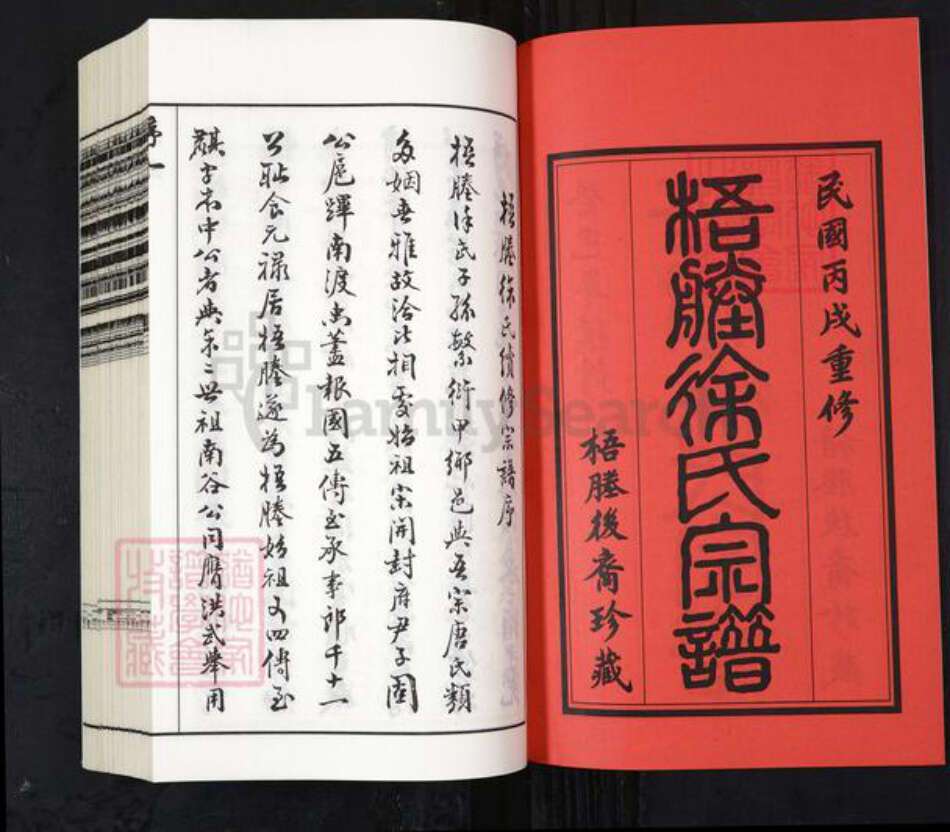 民國丙戌重修
梧塍徐氏宗譜
梧塍後裔珍藏
梧塍徐氏續修宗譜序
梧塍徐氏子孫繁衍甲鄉邑與吾宗唐氏類
多姻世雅故洽比相愛始祖宋開封府尹子固
公扈蹕南渡忠藎報國五傳至承事郎千十一
公恥食元祿居梧塍遂為梧塍始祖又四傳至
麒字本中公者與宋三世祖南谷公同膺洪武舉用
序一
FamilySearch